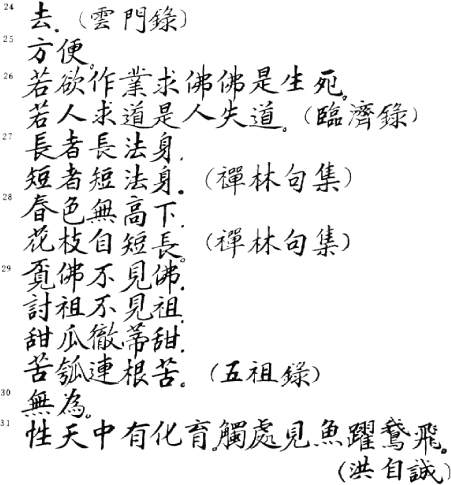 24 去.(雲門錄)
25 方便。
26 若欲作業求佛佛是生死。
若人求道是人失道。(臨濟錄)
27 長者長法身.
短者短法身.(禪林句集)
28 春色無高下.
花枝自短長。(禪林句集)
29 覔佛不見佛.
討祖不見祖.
甜瓜徹蒂甜.
苦瓠連根苦。(五祖錄)
30 無為。
31 性天中有化育.觸處見魚躍鵞飛。
(洪自誠)